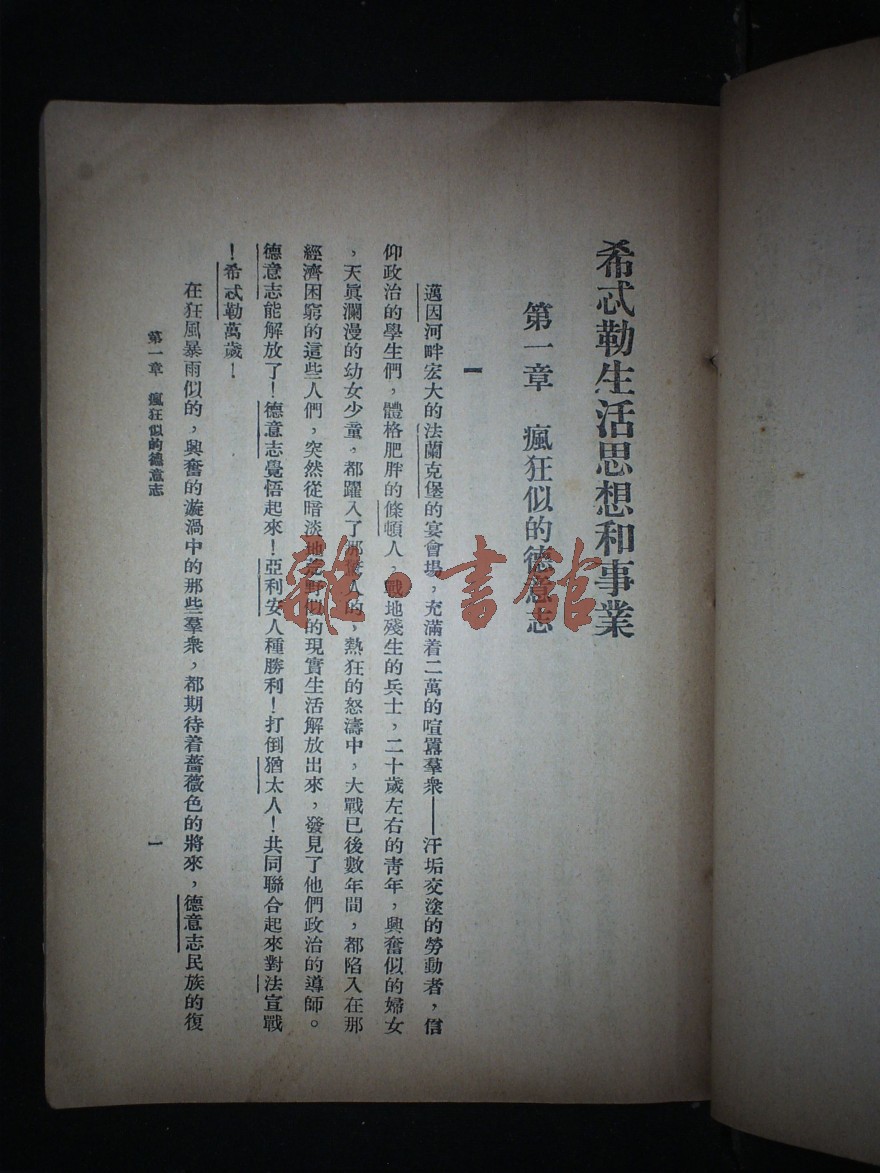 希忒勒生活思想和事業
第一章　瘋狂似的德意志
一
邁因河畔宏大的法蘭克堡的宴會場，充滿着二萬的喧囂羣衆——汗垢交塗的勞動者，信
仰政治的學生們，體格肥胖的條頓人，戰地殘生的兵士，二十歲左右的靑年，興奮似的婦女
，天眞瀾漫的幼女少童，都躍入了那驚人的，熱狂的怒濤中，大戰已後數年間，都陷入在那
經濟困窮的這些人們，突然從暗淡地荒野似的現實生活解放出來，發見了他們政治的導師。
德意志能解放了！德意志覺悟起來！亞利安人種勝利！打倒猶太人！共同聯合起來對法宣戰
！希忒勒萬歲！
在狂風暴雨似的，興奮的漩渦中的那些羣衆，都期待着薔薇色的將來，德意志民族的復
第一章　瘋狂似的德意志
一
雜·書館